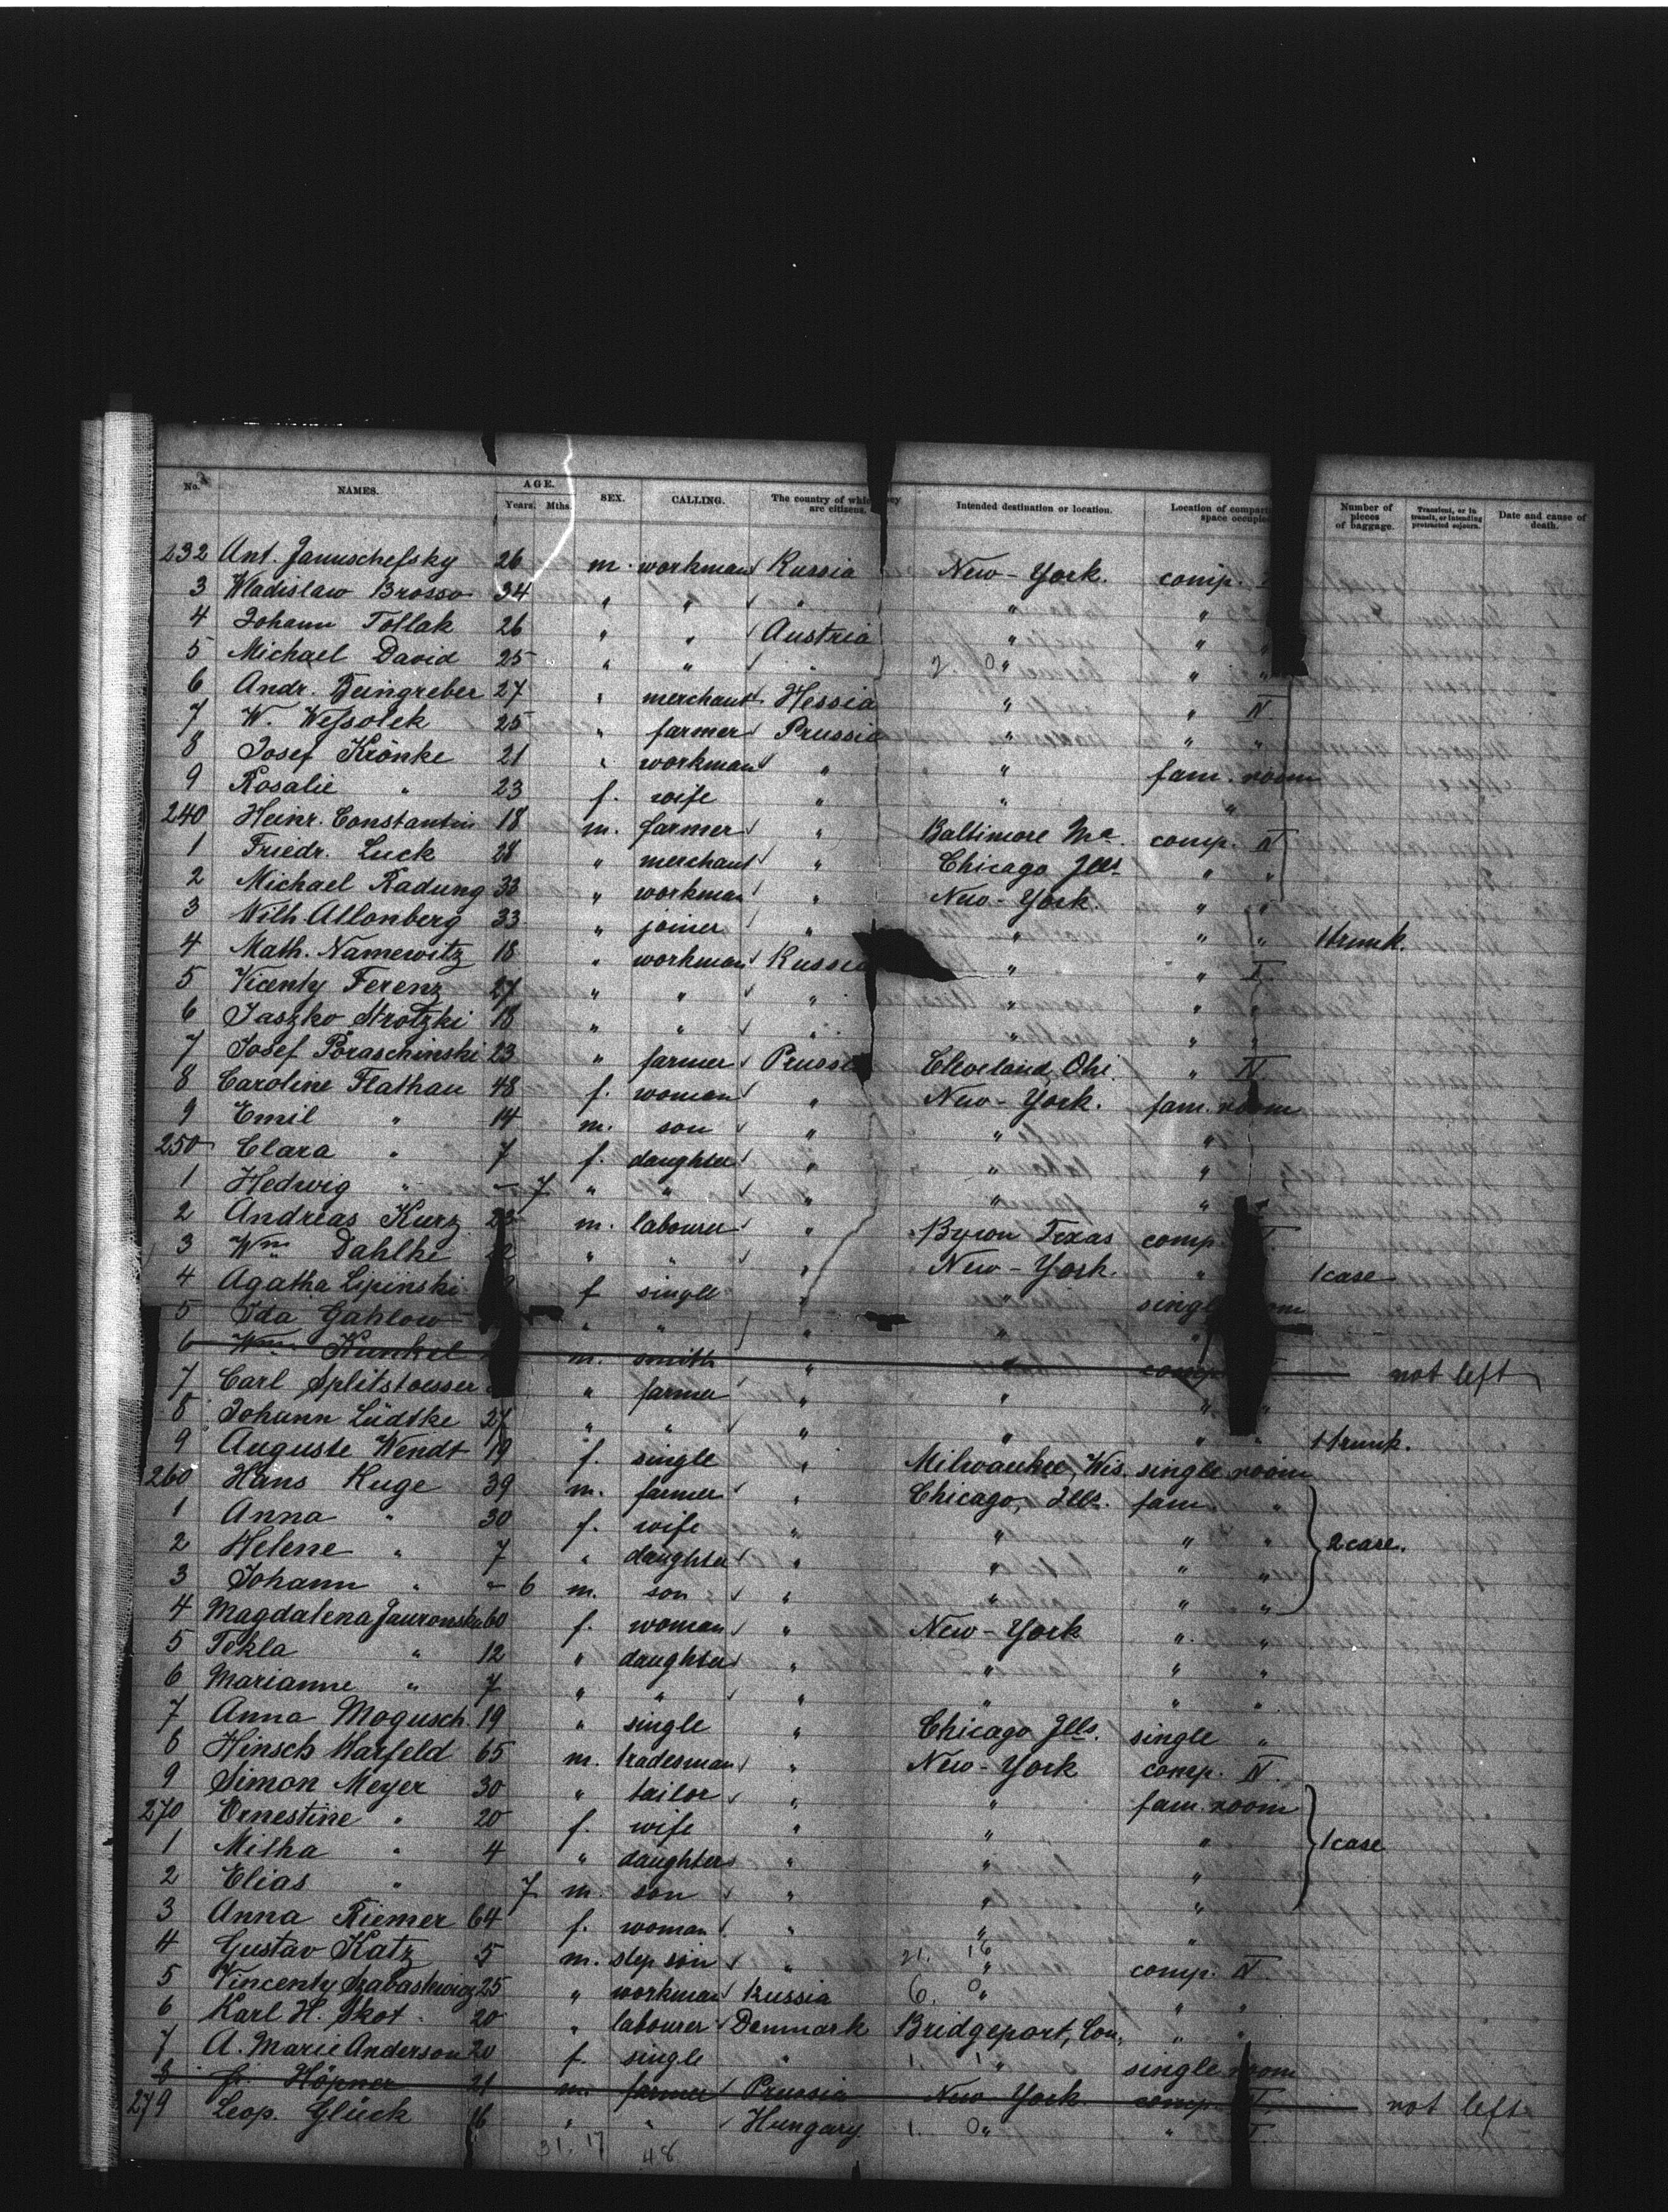 No. NAMES. AGE. Years. Mths. SEX. CALLING. The country of which they are citizens. Intended destination or location. Location of compartment space occupied Number of pieces of baggage. Transient, or in transit, or intending protracted sojourn. Date and cause of death.
232 Ant. Januschefsky 26 m. workman Russia New-York. comp.
3 Wladislaw Brosso 34 " " " " "
4 Johann Tollak 26 " " Austria " " "
5 Michael David 25 " " " " " "
6 Andr. Beingreber 27 " merchant Hessia " " IV.
7 W. Wessolek 25 " farmer Prussia " " "
8 Josef Krönke 21 " workman " " fam. room
9 Rosalie " 23 f. wife " " "
240 Heinr. Constantin 18 m. farmer " Baltimore Md. comp. IV
1 Friedr. Luck 28 " merchant " Chicago Ills " "
2 Michael Radung 33 " workman " New-York. " "
3 Wilh. Allonberg 33 " joiner " " " " 1 trunk.
4 Math. Namewitz 18 " workman Russia " " I.
5 Vicenty Ferenz 27 " " " " " "
6 Jaszko Strotzki 18 " " " " " "
7 Josef Poraschinski 23 " farmer Prussia Cleveland, Ohi. " IV.
8 Caroline Flathau 48 f. woman " New-York. fam. room
9 Emil " 14 m. son " " "
250 Clara " 7 f. daughter " " "
1 Hedwig " - 7 " " " " "
2 Andreas Kurz 23 m. labourer " Byron Texas comp.
3 Wm Dahlke 22 " " " New-York. " 1 case
4 Agatha Lipinski f single " " single room
5 Ida Gahlow " " " " "
6 Wm. Kunkel m. smith " " comp. not left
7 Carl Splitstoesser " farmer " " " "
8 Johann Lüdtke 27 " " " " " " 1 trunk.
9 Auguste Wendt 19 f. single " Milwaukee, Wis. single room
260 Hans Kuge 39 m. farmer " Chicago, Ills. fam. "
1 Anna " 30 f. wife " " " " 2 case.
2 Helene " 7 " daughter " " " "
3 Johann " - 6 m. son " " " "
4 Magdalena Jauronska 60 f. woman " New-York " "
5 Tekla " 12 " daughter " " " "
6 Marianne " 7 " " " " " "
7 Anna Mogusch. 19 " single " Chicago Ills. single "
8 Hinsch Warfeld 65 m. tradesman " New-York comp. IV.
9 Simon Meyer 30 " tailor " " fam. room
270 Ernestine " 20 f. wife " " " 1 case
1 Mitha " 4 " daughter " " "
2 Elias " 7 m. son " " "
3 Anna Riemer 64 f. woman " " "
4 Gustav Katz 5 m. step son " 21. 16 " comp. IV.
5 Vincenty 25 " workman Russia 6. 0 " " "
6 Karl H. Skot. 20 " labourer Denmark Bridgeport, Con. " "
7 A. Marie Anderson 20 f. single " 1. 1 " single room
8 Höpner 21 m. farmer Prussia New York. comp. I. not left
279 Leop. Glück 16 " " Hungary 1. 0 " " I.
31. 17 48